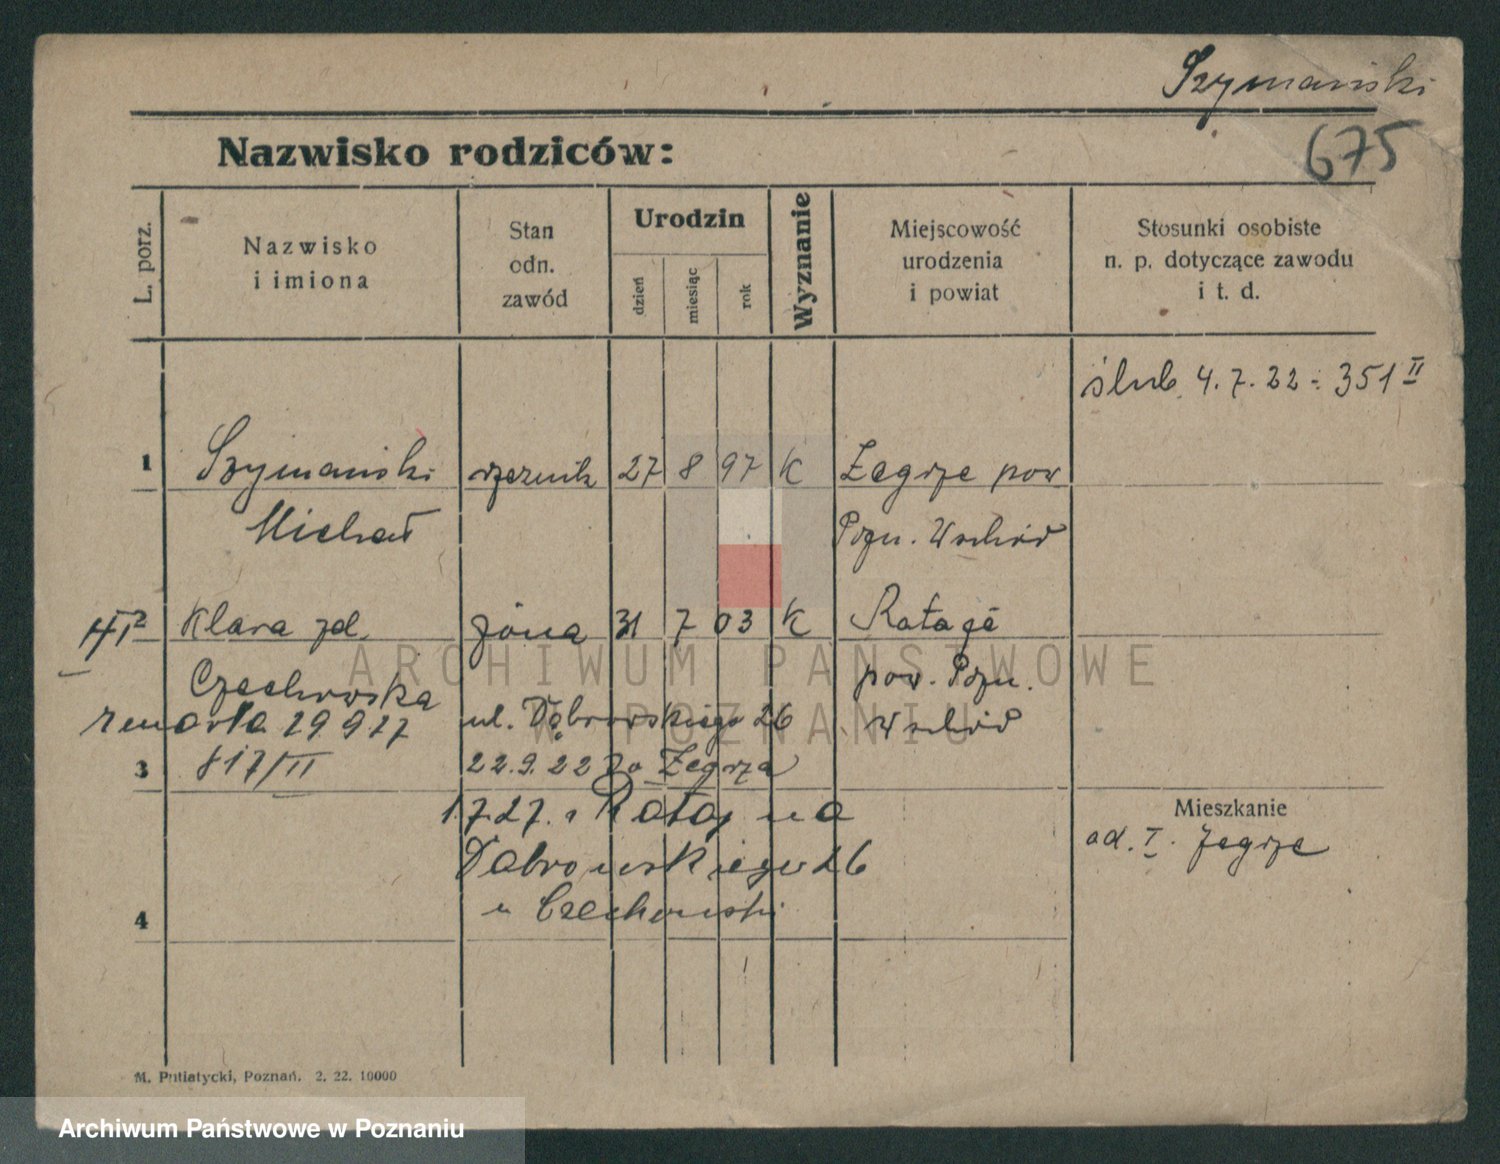 Szymański
675
Nazwisko rodziców:
L. porz.
Nazwisko
i imiona
Stan
odn.
zawód
Urodzin
dzień
miesiąc
rok
Wyznanie
Miejscowość
urodzenia
i powiat
Stosunki osobiste
n. p. dotyczące zawodu
i t. d.
ślub 4.7.22 = 351 II
1 Szymański rzeźnik 27 8 97 K Zegrze pow
Michał Pozn. Wschód
2 Klara zd. żona 31 7 03 K Rataje
Czechowska pow. Pozn.
zmarła 29 9 27 ul. Dąbrowskiego 26 Wschód
3 817/II 22.9.22 do Zegrza
1.7.27. z Rataj na
Mieszkanie
Dąbrowskiego 26
od. I. Zegrze
4 u Czechowski
M. Putiatycki, Poznań. 2. 22. 10000
ARCHIWUM PAŃSTWOWE
W POZNANIU
Archiwum Państwowe w Poznaniu